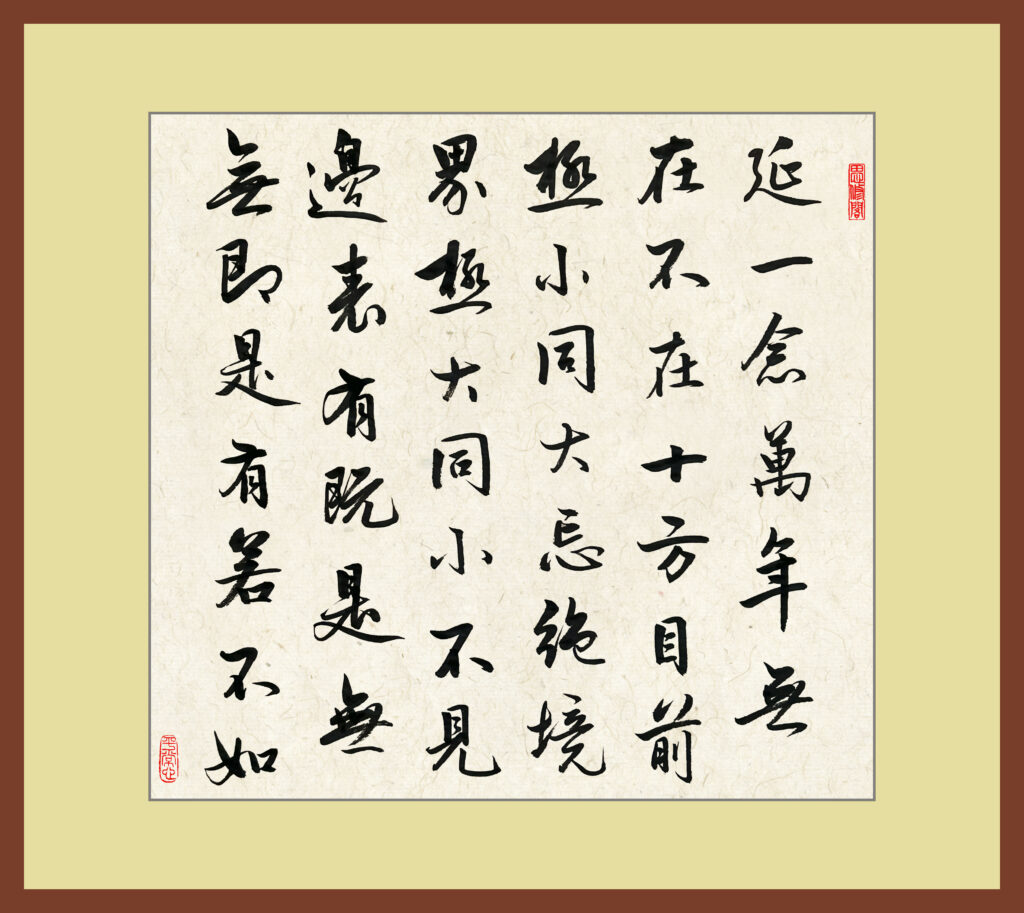 思修閣
延一念萬年無
在不在十方目前
極小同大忘絕境
界極大同小不見
邊表有既是無
無即是有若不如
平常心